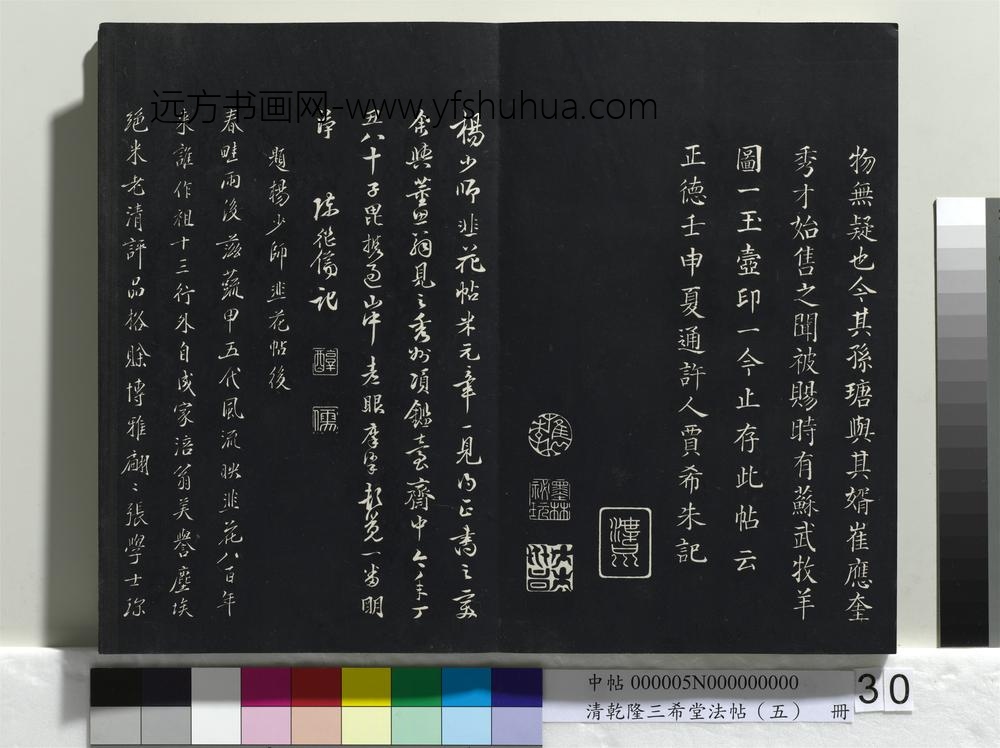 远方书画网-www.yfshuhua.com
物無疑也今其孫瑭與其婿崔應奎
秀才始售之聞被賜時有蘇武牧羊
圖一玉壺印一今止存此帖云
正德壬申夏通許人賈希朱記
楊少師韭花帖米元章一見內正書之変
余與董思翁見之秀州項鑑臺齋中今年丁
丑八十子毘携過山中老眼摩挲新覚一畨明
淨 陳繼儒記
醇
儒
題楊少師韭花帖後
春畦雨後茁蔬甲五代風流映韭花八百年
來誰作祖十三行外自成家涪翁美譽塵埃
絕米老清評品格賒博雅翩〻張學士珎
中帖 000005N000000000
清乾隆三希堂法帖（五） 冊
30